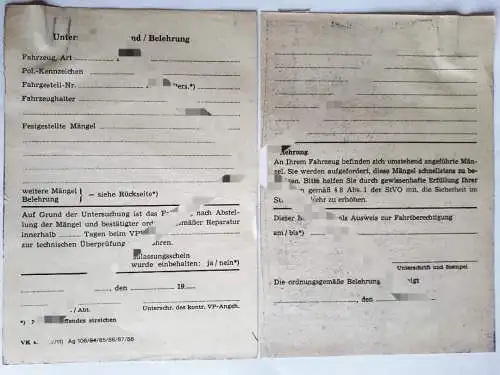 Unter nd / Belehrung
Fahrzeug, Art
Pol.-Kennzeichen
Fahrgestell-Nr. ers.*)
Fahrzeughalter
Festgestellte Mängel
weitere Mängel
Belehrung } – siehe Rückseite*)
Auf Grund der Untersuchung ist das nach Abstel-
lung der Mängel und bestätigter ord mäßer Reparatur
innerhalb Tagen beim VP
zur technischen Überprüfung hren.
ulassungsschein
wurde einbehalten: ja / nein*)
, den 19
/ Abt. Unterschr. des kontr. VP-Angeh.
*) ffendes streichen
VK Ag 106/84/85/86/87/88
elehrung
An Ihrem Fahrzeug befinden sich umstehend angeführte Män-
gel. Sie werden aufgefordert, diese Mängel schnellstens zu be-
en. Bitte helfen Sie durch gewissenhafte Erfüllung Ihrer
en gemäß § 8 Abs. 1 der StVO mit, die Sicherheit im
St kehr zu erhöhen.
Dieser ls Ausweis zur Fahrtberechtigung
am / bis*)
Unterschrift und Stempel
Die ordnungsgemäße Belehrung igt
, den